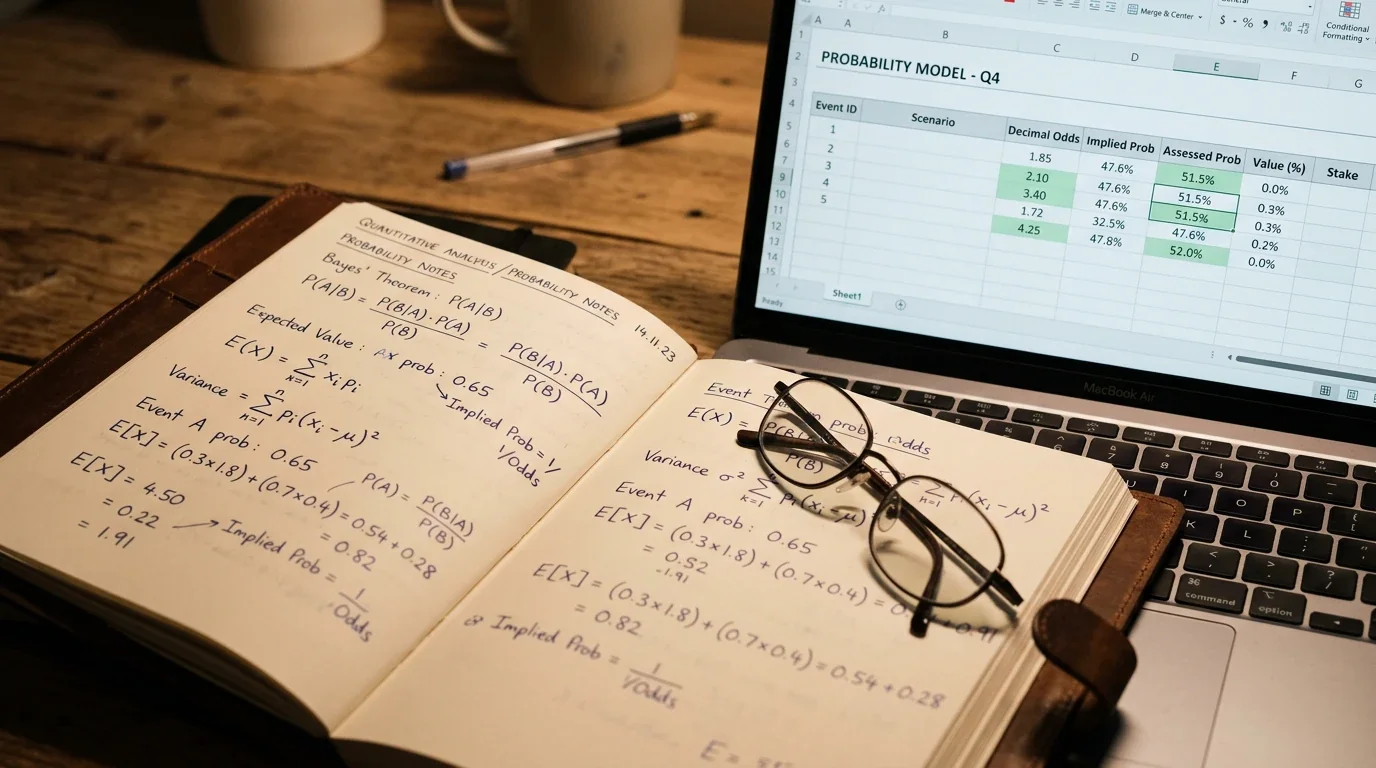 QUANTITATIVE ANALYSIS / PROBABILITY NOTES
PROBABILITY NOTES
14.11.23
Bayes' Theorem: P(A|B)
P(A|B) = P(B|A) · P(A) / P(B) = P(B|A) · P(A) / P(B)
Expected Value: prob: 0.65
E(X) = n Σ n=1 xi pi
Implied Prob = 1/
1/Odds
Variance = n Σ n=1 Pi (xi - μ)²
Event A prob: 0.65
P(A) = P(B|A) / P(B)
E[X] = (0.3×1.8) + (0.7×0.4) = 0.54 + 0.28
= 0.82
E[X] = 4.50
= 0.22 → Implied Prob = 1/Odds
= 1.91
Event prob odds
E(X) =
P(B)
Variance σ² Σ K=1 Pi (xi - μ) = Σ (xi - μ)²
Event A prob: 0.65
E[X] = (0.3×1.8) + (0.7×0.4) = + 0.91
= 0.52
-1.91
E[X] = (0.3×1.8) + (0.7×0.4) = 0.54 + 0.28
= 0.82
Implied Prob = 1 / 1/Odds
E =
Merge & Center
$ % ,
Conditional
Formatting
A A B C D E F G
PROBABILITY MODEL - Q4
Event ID Scenario Decimal Odds Implied Prob Assessed Prob Value (%) Stake
1 1.85 47.6% 51.5% 0.0%
2 2.10 47.6% 51.5% 0.3%
3 3.40 47.6% 51.5% 0.3%
4 1.72 32.5% 47.6% 0.2%
5 4.25 47.8% 52.0% 0.0%
1
2
3
4
5
6
7
9
10
11
12
13
15
Sheet1
Ready
MacBook Air
I O P
K L
command
option